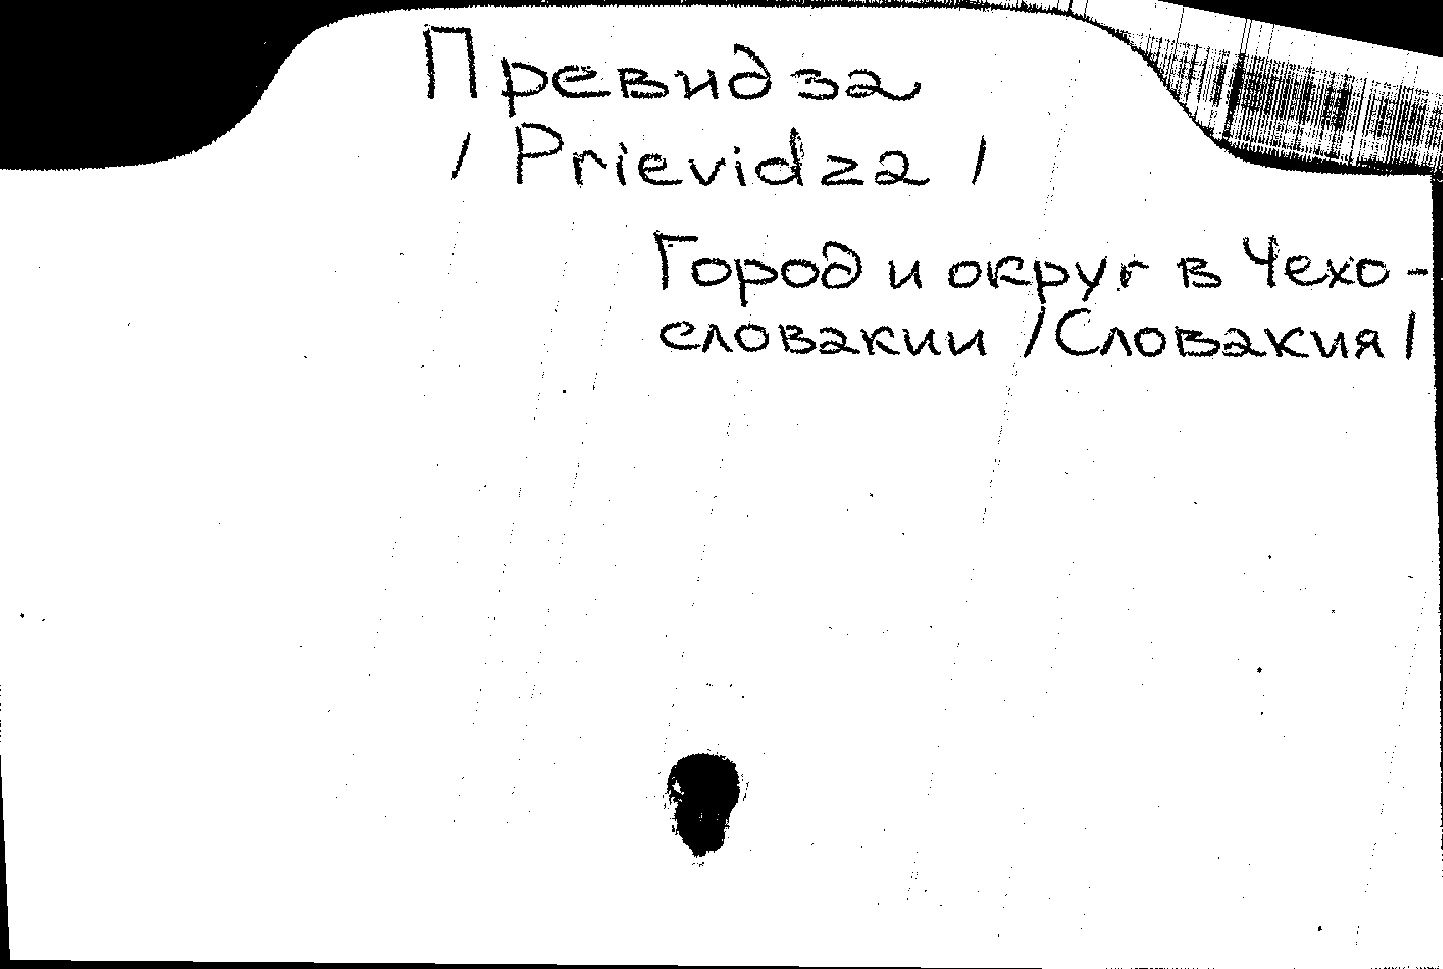 Превидза
/ Prievidza /
Город и округ в Чехо-
словакии /Словакия/